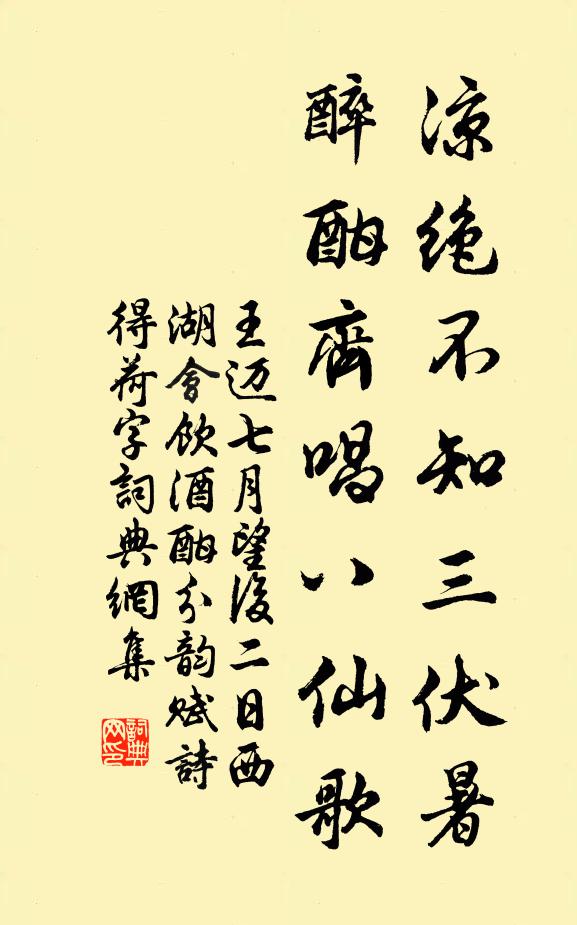 凉絶不知三伏暑
醉酣齊唱八仙歌
王迈七月望後二日西
湖會飲酒酣分韵賦詩
得荷字詞典網集
詞典网印